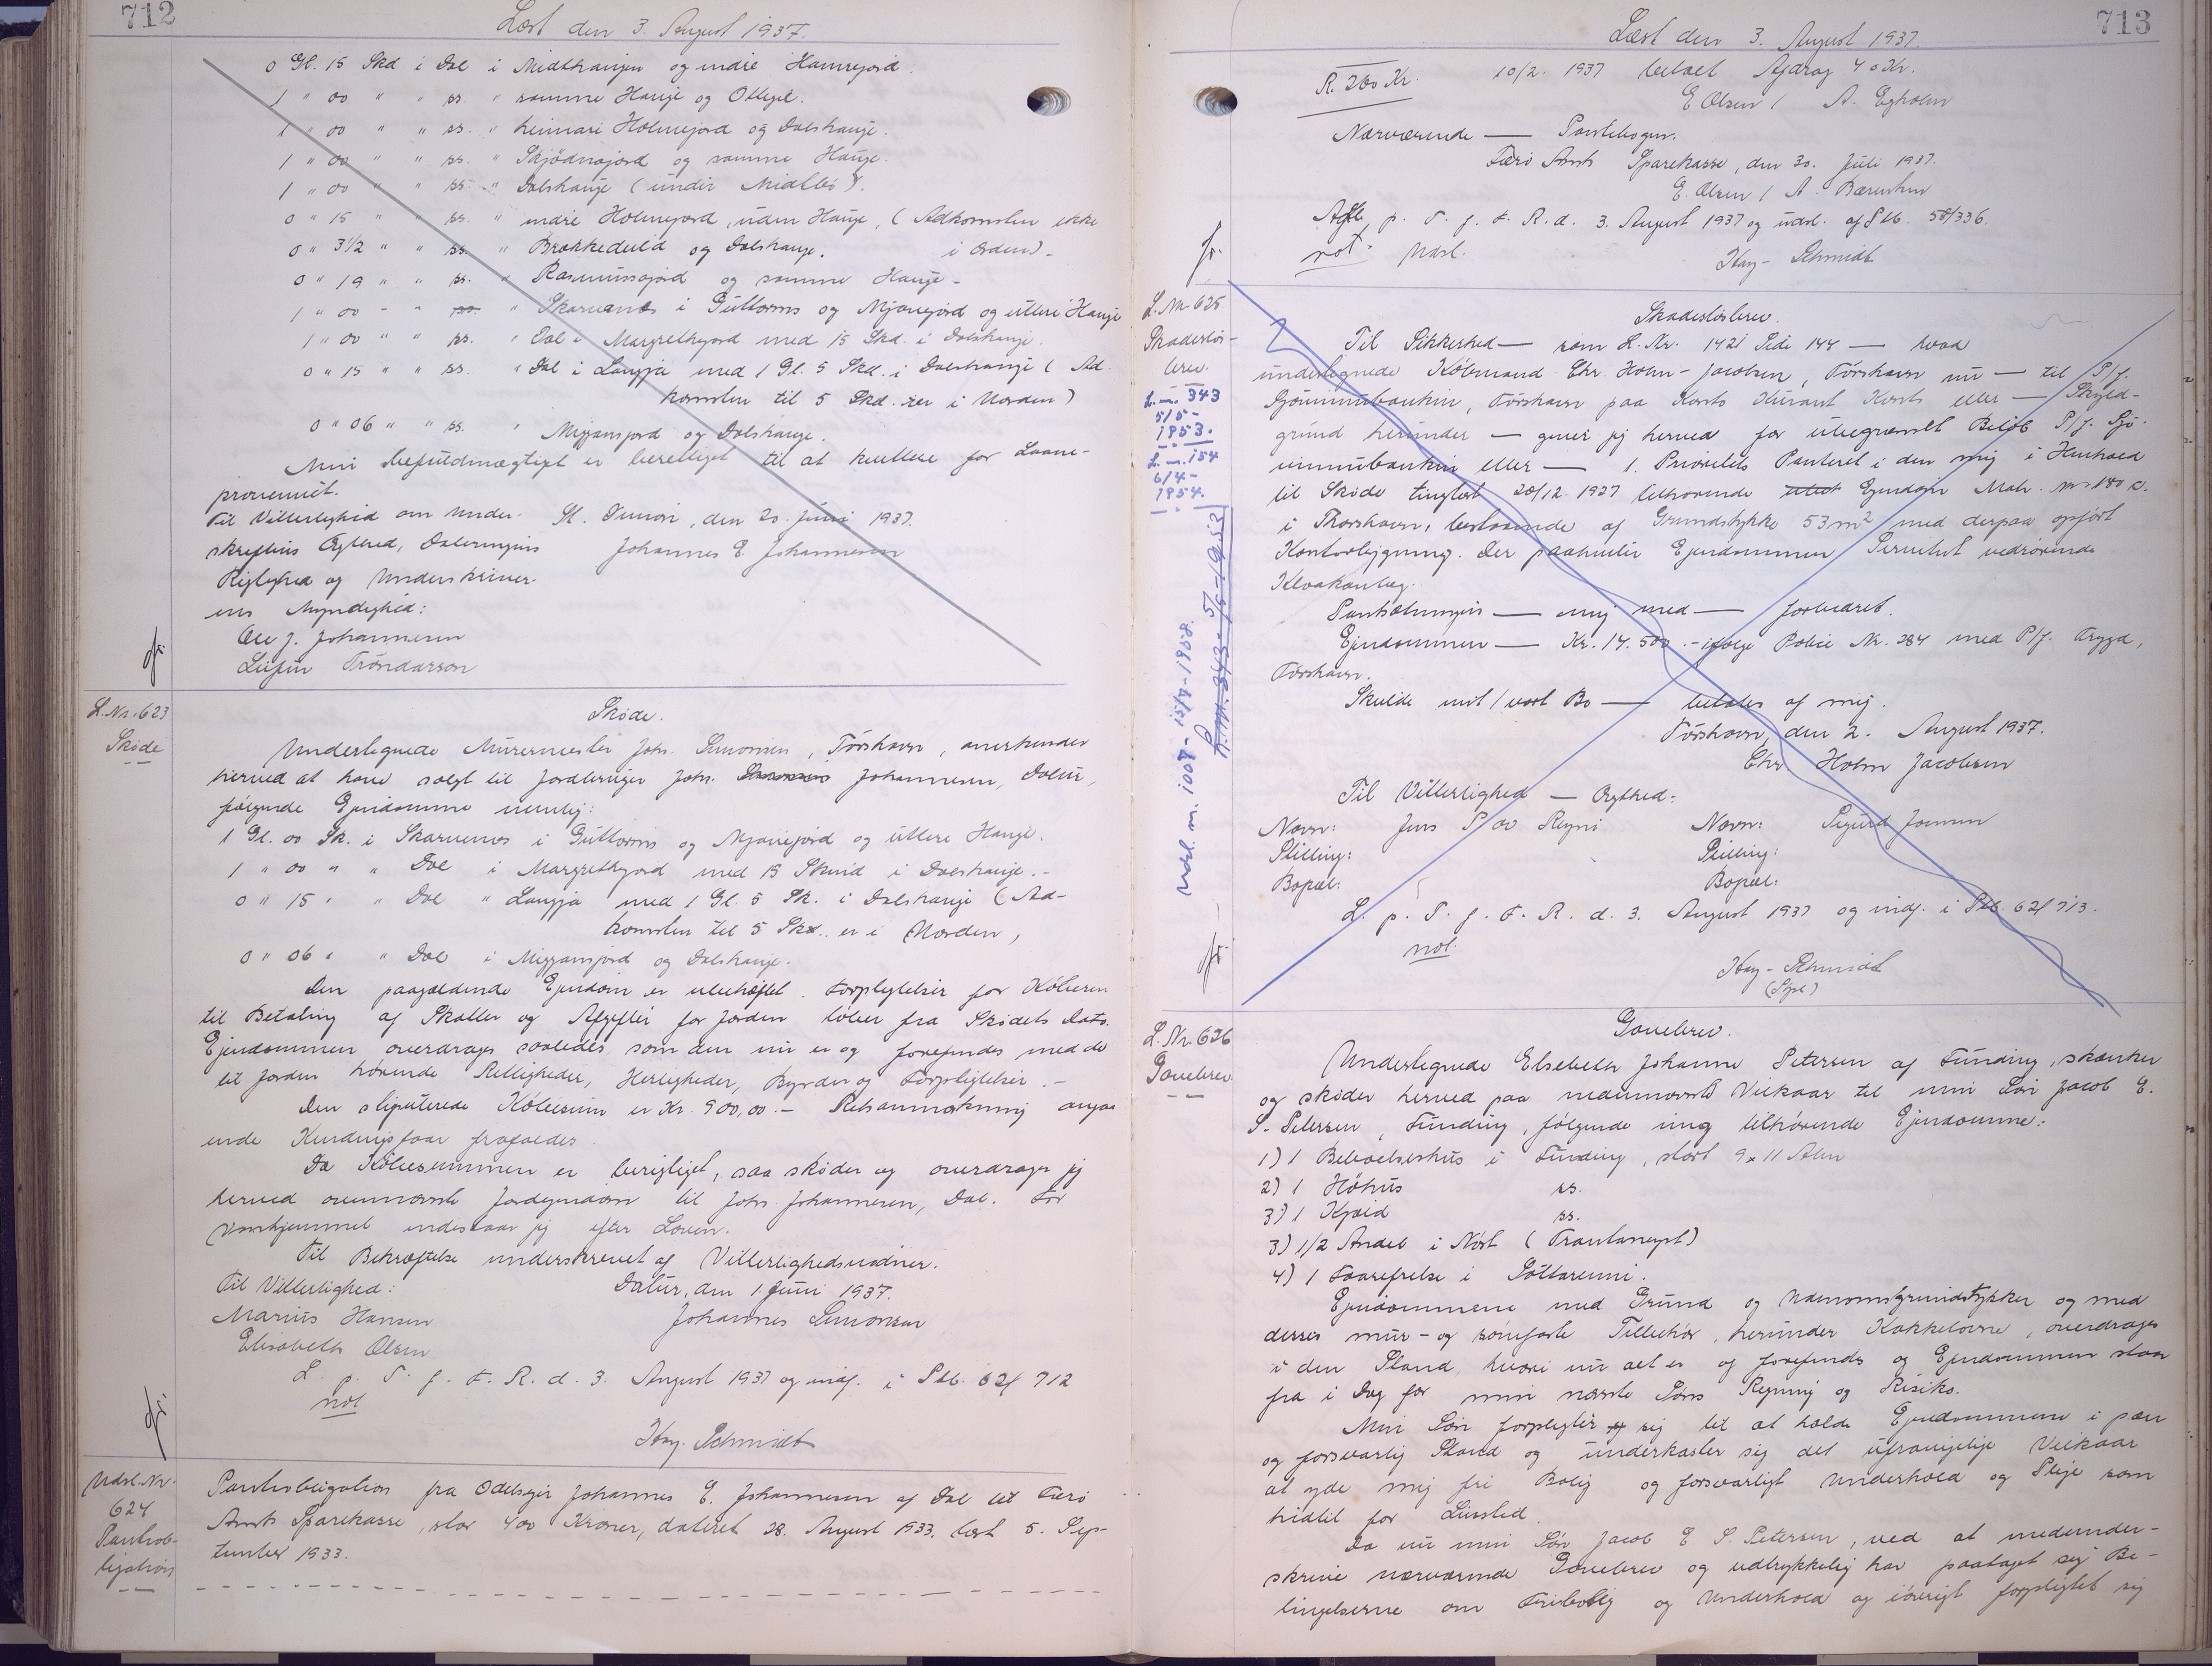 712
Læst den 3. August 1937.
0 Gl. 15 Skd i Dal i Midthaugen og indre Hamrejord.
1 " 00 " " ss. " samme Hauge og
1 " 00 " " ss. " heimari Holmejord og Dalshauge.
1 " 00 " " ss. " og samme Hauge.
1 " 00 " " ss. " Dalshauge (undir
0 " 15 " " ss. " indre Holmejord, uden Hauge, (Adkomsten ikke
0 " 3 1/2 " " ss. " og Dalshauge. i Orden).
0 " 19 " " ss. " og samme Hauge.
1 " 00 " " " Skarvanes i Guttorms og Mjavejord og uttere Hauge
1 " 00 " " ss. " Dal i Margrethejord med 15 Skd. i Dalshauge.
0 " 15 " " ss. " Dal i Langjá med 1 Gl. 5 Skd. i Dalshauge (Ad-
komsten til 5 Skd. er i Uorden)
0 " 06 " " ss. " og Dalshauge.
Min befuldmægtiget er berettiget til at kvittere for Laane-
provenuet.
Til Vitterlighed om Under-
St. Dimon, den 20. Juni 1937.
skriftens Ægthed, Dateringens
Johannes E. Johannesen
Rigtighed og Underskriver-
ens Myndighed:
Ole J. Johannesen
Tróndarson
L.Nr. 623
Skøde
Skøde.
Undertegnede Murermester Johs. Simonsen, Tórshavn, anerkender
herved at have solgt til Jordbruger Johs. Johannesen, Dalur,
følgende Ejendomme nemlig:
1 Gl. 00 Sk. i Skarvenes i Guttorms og Mjavejord og uttere Hauge.
1 " 00 " " Dal i Margrethejord med 15 Skind i Dalshauge.-
0 " 15 " " Dal " Langjá med 1 Gl. 5 Sk. i Dalshauge (Ad-
komsten til 5 Skd. er i Uorden,
0 " 06 " " Dal i og Dalshauge.
Den paagældende Ejendom er ubehæftet. Forpligtelser for Køberen
til Betaling af Skatter og Afgifter for Jorden løber fra Skødets Dato.
Ejendommen overdrages saaledes som den nu er og forefindes med de
til Jorden hørende Rettigheder, Herligheder, Byrder og Forpligtelser.-
Den stipulerede Købesum er Kr. 900,00.- Retsanmærkning angaa
ende Kendingsfaar frafaldes.
Da Købesummen er berigtiget, saa skøder og overdrager jeg
herved ovennævnte Jordejendom til Johs Johannesen, Dal. For
Vanhjemmel indestaar jeg efter Loven.
Til Bekræftelse underskrevet af Vitterlighedsvidner.
Til Vitterlighed:
Dalur, den 1 Juni 1937.
Marius Hansen
Johannes Simonsen
Elisabeth Olsen
L. p. T. f. F. R. d. 3. August 1937 og indf. i Ptb. 62/712
not
Hay-Schmidt
Udsl.Nr.
624
Pantob-
ligation
Pantobligation fra Odelsejer Johannes E. Johannesen af Dal til Færø
Amts Sparekasse, stor 400 Kroner, dateret 28. August 1933. læst 5. Sep-
tember 1933.
713
Læst den 3. August 1937.
R. 360 Kr.
10/2. 1937 betalt Afdrag 40 Kr.
E Olsen / A. Egholm
Nærværende — Pantebogen.
Færø Amts Sparekasse, den 30. Juli 1937.
E. Olsen / A.
Aflt. p. T. f. F. R. d. 3. August 1937 og udsl. af Ptb. 58/336.
not. Udsl.
Hay-Schmidt
L.Nr 625
Skadesløs-
brev.
L.nr. 343
5/5-
1953.
L.nr. 154
6/4-
1954.
Udsl. nr. 1007 - 15/7-1958.
Skadesløsbrev.
Til Sikkerhed — som L.Nr. 142 Side 144 — hvad
undertegnede Købmand Chr. Holm-Jacobsen, Tórshavn nu — til P/f.
Sjóvinnubankin, Tórshavn paa Konto Kurant Konto eller — Skyld-
grund herunder — giver jeg herved for ubegrænset Beløb P/f. Sjó-
vinnubankin eller — 1. Prioritets Panteret i den mig i Henhold
til Skøde tinglyst 20/12. 1927 tilhørende Ejendom Matr. nr 180 c.
i Thorshavn, bestaaende af Grundstykke 53 m² med derpaa opført
Kontorbygning. Der paahviler Ejendommen Servitut vedrørende
Kloakanlæg.
Pantsætningen — mig med — forbeholdt.
Ejendommen — Kr. 14.500.- ifølge Police Nr. 284 med P/f. Trygd,
Tórshavn.
Skulde mit/vort Bo — betales af mig.
Tórshavn, den 2. August 1937.
Chr. Holm Jacobsen
Til Vitterlighed — Ægthed:
Navn: Jens P av Reyni Navn: Sigurd Joensen
Stilling: Stilling:
Bopæl: Bopæl:
L. p. T. f. F. R. d. 3. August 1937 og indf. i Ptb. 62/713.
not.
Hay-Schmidt
L.Nr. 626
Gavebrev
Gavebrev.
Undertegnede Elsebeth Johanne Petersen af Funding, skænker
og skøder herved paa nedennævnte Vilkaar til min Søn Jacob E.
S. Petersen, Funding, følgende mig tilhørende Ejendomme:
1) 1 Beboelseshus i Funding, stort 9 x 11 Alen
2) 1 Høhus ss.
3) 1 Kjald ss.
3) 1/2 Andel i Nøst (
4) 1 i
Ejendommene med Grund og Udenomsgrundstykker og med
deres mur- og sømfaste Tilbehør, herunder Kakkelovne, overdrages
i den Stand, hvori nu alt er og forefindes og Ejendommen staar
fra i Dag for min nævnte Søns Regning og Risiko.
Min Søn forpligter sig til at holde Ejendommene i pæn
og forsvarlig Stand og underkaster sig det ufravigelige Vilkaar
at yde mig fri Bolig og forsvarligt Underhold og Pleje som
hidtil for Livstid.
Da nu min Søn Jacob E S. Petersen, ved at medunder-
skrive nærværende Gavebrev og udtrykkelig har paataget sig Be-
tingelserne om Fribolig og Underhold og iøvrigt forpligtet sig